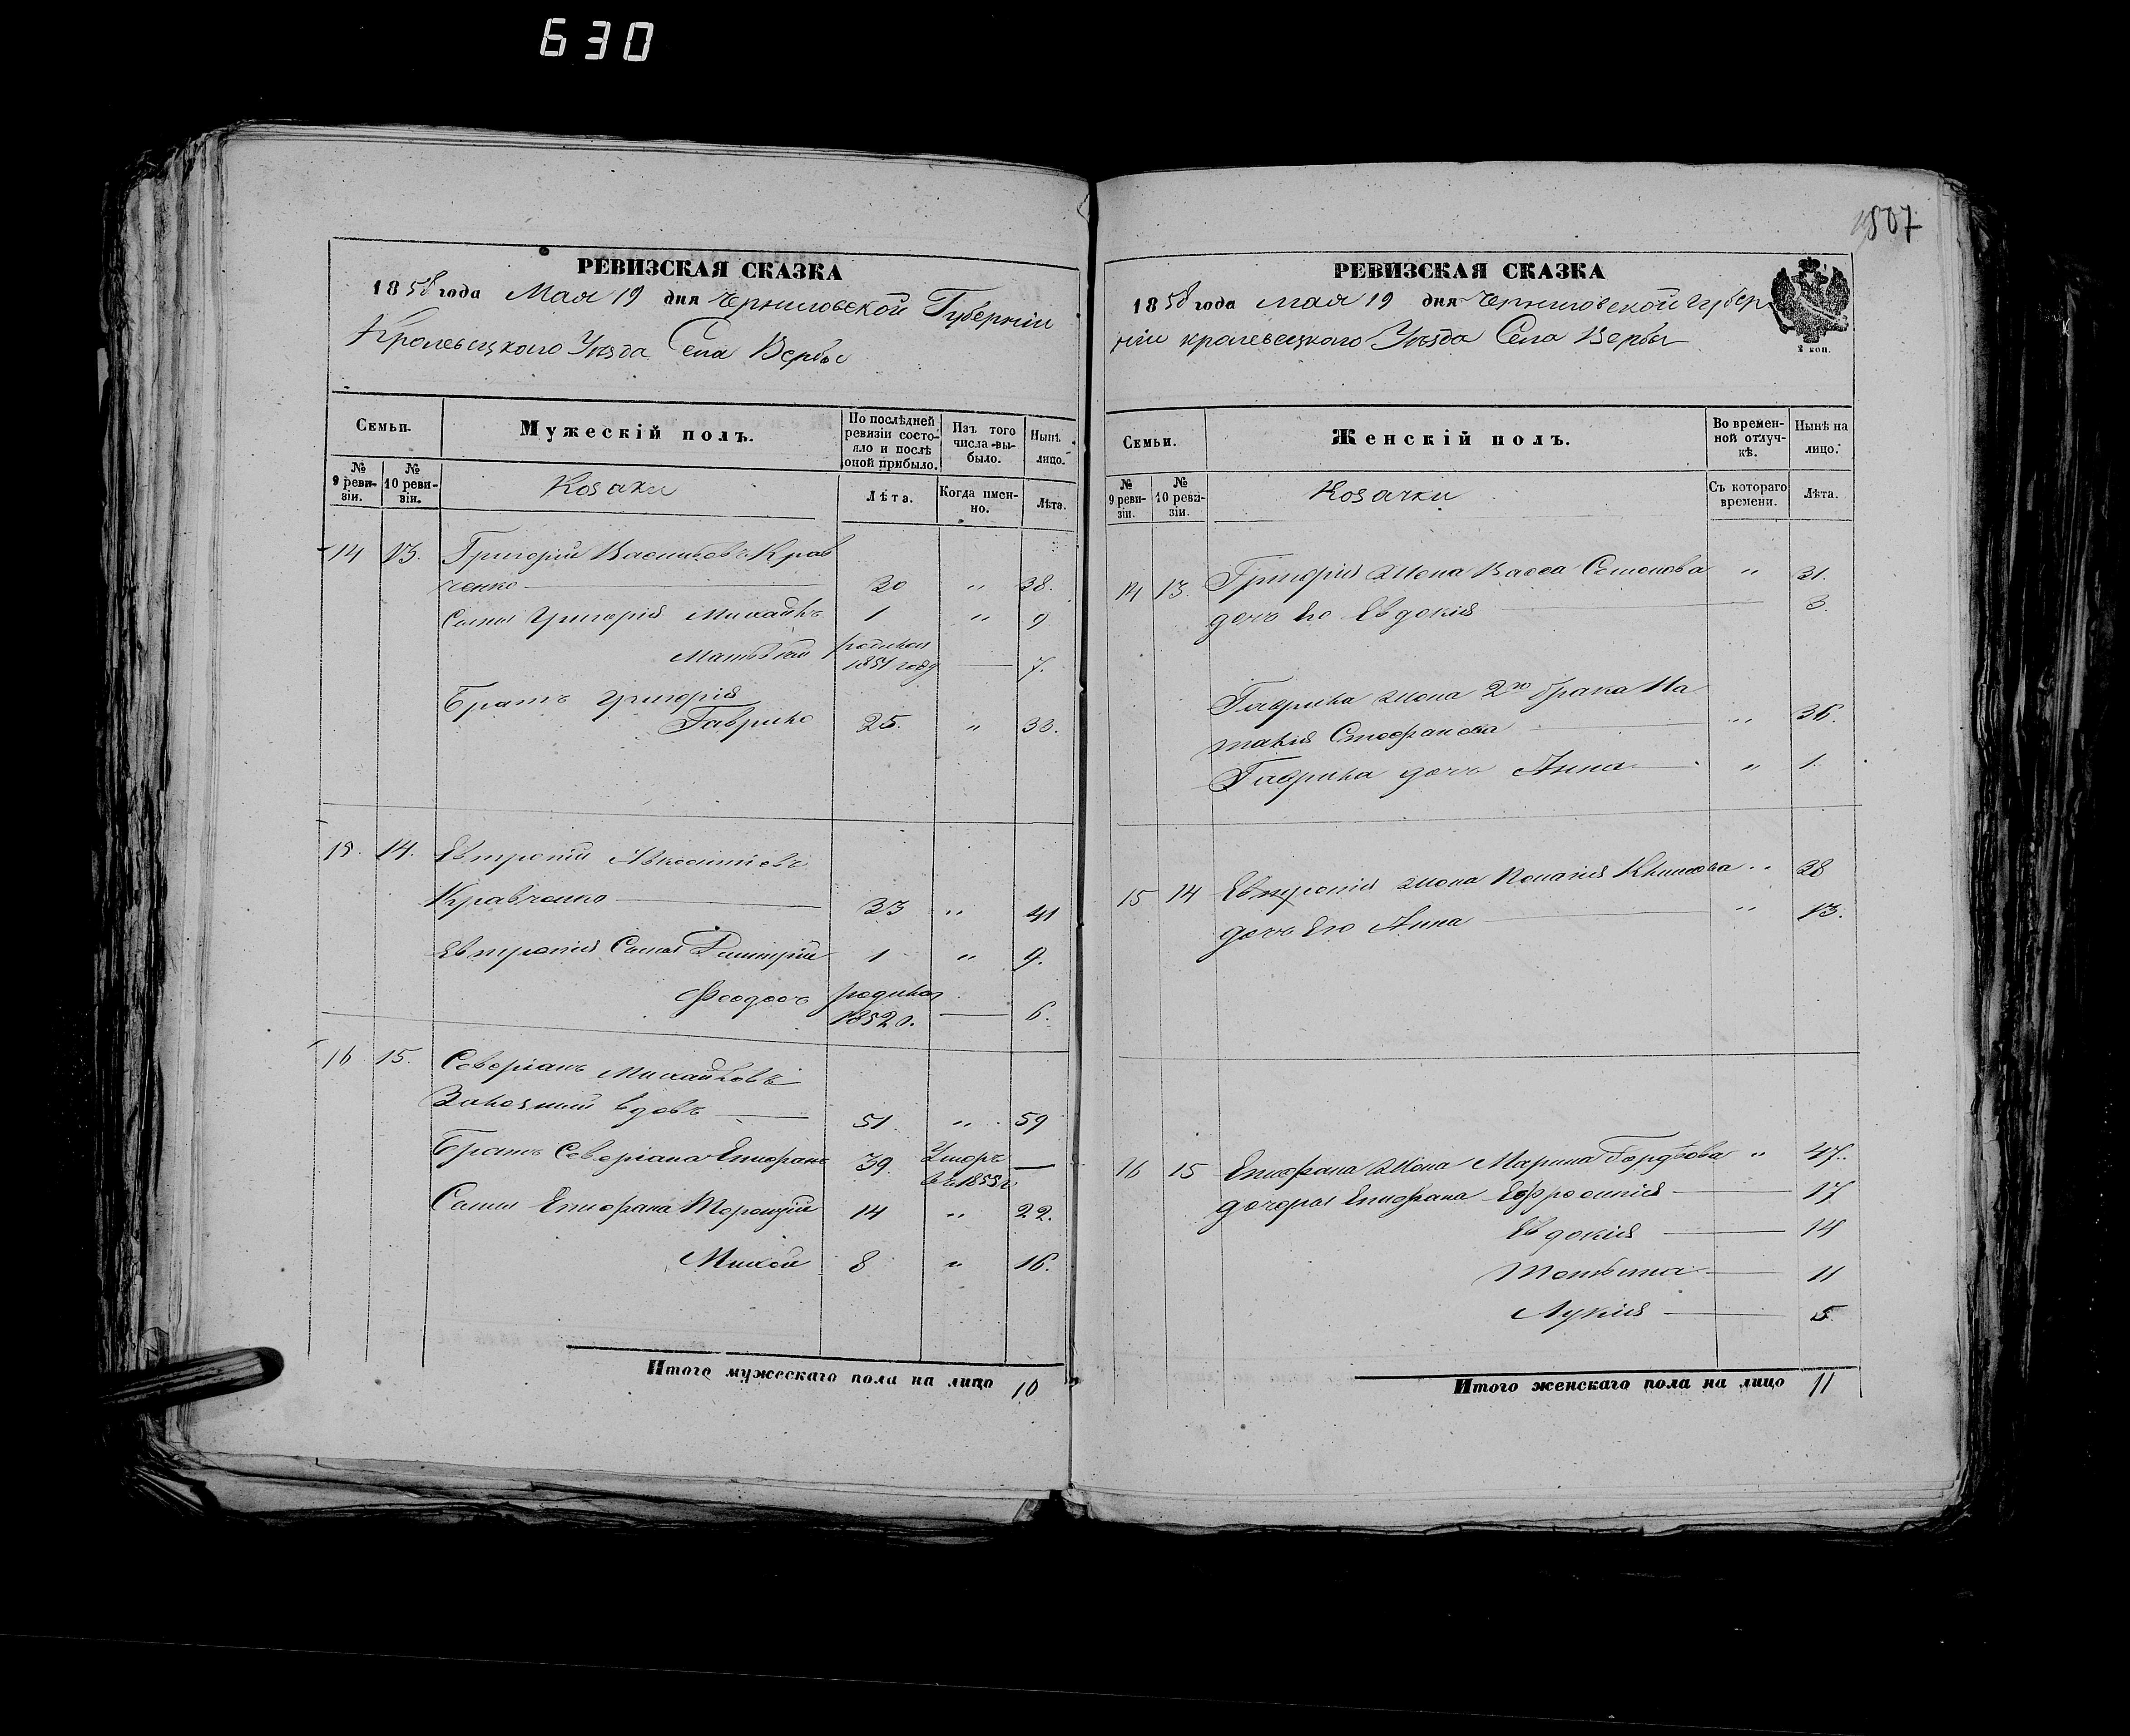 630
507
РЕВИЗСКАЯ СКАЗКА
1858 года Мая 19 дня Черниговской Губерніи
Кролевецкаго Уезда Села Вербы
Семьи.
Мужескій полъ.
По послѣдней ревизіи состояло и послѣ оной прибыло.
Изъ того числа выбыло.
Нынѣ лицо.
№ 9 ревизіи.
№ 10 ревизіи.
Козаки
Лѣта.
Когда именно.
Лѣта.
14 13. Григорій Васильевъ Крав
ченко 30 " 38.
Сыны Григорія Михайлъ 1 " 9
Матвѣй родился 1851 году 7.
Братъ Григорія
Гаврило 25. " 33.
15. 14. Евтропій Авксентіевъ
Кравченко 33 " 41
Евтропія Сыны Димитрій 1 " 9.
Феодоръ родился 1852 г. 6.
16 15. Северіанъ Михайловъ
вдовъ 51 " 59
Братъ Северіана Епифанъ 39. Умеръ въ 1855 г.
Сыны Епифана Терентій 14 " 22.
Михей 8 " 16.
Итого мужескаго пола на лицо 10
РЕВИЗСКАЯ СКАЗКА
1858 года мая 19 дня Черниговской Губер
ніи кролевецкаго Уезда Села Вербы
2 коп.
Семьи.
Женскій полъ.
Во временной отлучкѣ.
Нынѣ на лицо.
№ 9 ревизіи.
№ 10 ревизіи.
Козачки
Съ котораго времени.
Лѣта.
14 13. Григорія жена Васса Семенова " 31.
дочь Его Евдокія 3.
Гаврила жена 2го брака На
талія Стефанова " 36.
Гаврила дочь Анна " 1.
15 14 Евтропія жена Пелагія Климова " 38
дочь Его Анна " 13.
16 15 Епифана жена Марина Гордѣева " 47.
дочери Епифана Ефросинія 17
Евдокія 14
Татьяна 11
Лукія 5.
Итого женскаго пола на лицо 11